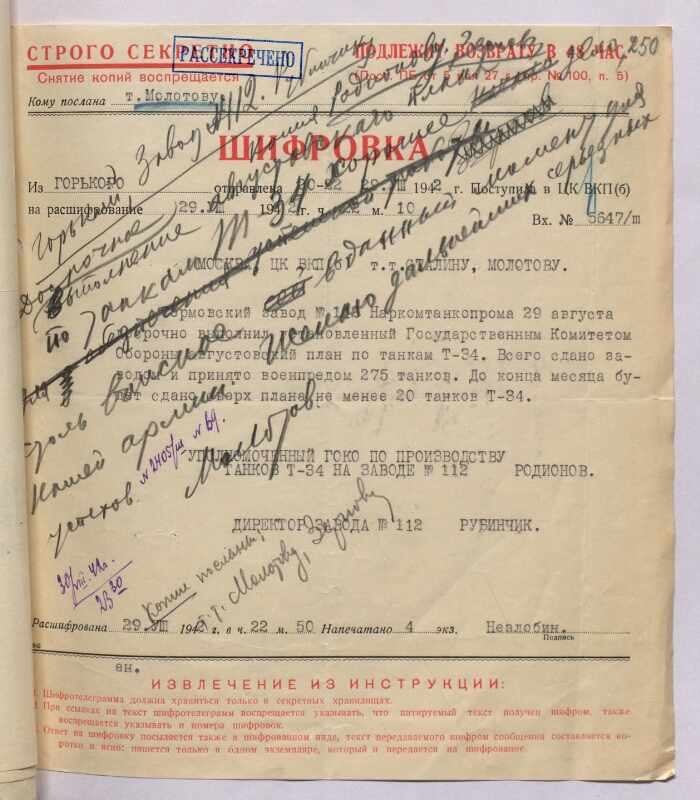 СТРОГО СЕКРЕТНО
РАССЕКРЕЧЕНО
ПОДЛЕЖИТ ВОЗВРАТУ В 48 ЧАС.
250
Снятие копий воспрещается
(Пост. ПБ от 5 мая 27 г. пр. № 100, п. 5)
Кому послана т. Молотову.
ШИФРОВКА
Из ГОРЬКОГО отправлена 20-22 29.VIII 1942 г. Поступила в ЦК ВКП(б)
на расшифрование 29.VIII 1942 г. ч. 22 м. 10
Вх. № 5647/ш
МОСКВА, ЦК ВКП(б) т.т. СТАЛИНУ, МОЛОТОВУ.
Сормовский завод № 112 Наркомтанкопрома 29 августа
досрочно выполнил установленный Государственным Комитетом
Обороны августовский план по танкам Т-34. Всего сдано за-
водом и принято военпредом 275 танков. До конца месяца бу-
дет сдано сверх плана не менее 20 танков Т-34.
УПОЛНОМОЧЕННЫЙ ГОКО ПО ПРОИЗВОДСТВУ
ТАНКОВ Т-34 НА ЗАВОДЕ № 112 РОДИОНОВ.
ДИРЕКТОР ЗАВОДА № 112 РУБИНЧИК.
Горький, Завод № 112. Рубинчику
копия Родионову, Зернову
Досрочное
выполнение августовского плана
по танкам Т 34 хорошее дело,
в данный момент для
нашей армии. Желаю дальнейших серьезных
успехов. Молотов.
N 2405/ш N 69.
30/VIII.42г.
23 30
Копии посланы:
т.т. Молотову, Зернову
Расшифрована 29.VIII 1942 г. в ч. 22 м. 50 Напечатано 4 экз. Незлобин.
Подпись
ен.
ИЗВЛЕЧЕНИЕ ИЗ ИНСТРУКЦИИ:
1. Шифротелеграмма должна храниться только в секретных хранилищах.
2. При ссылках на текст шифротелеграмм воспрещается указывать, что цитируемый текст получен шифром, также
воспрещается указывать и номера шифровок.
. Ответ на шифровку посылается также в шифрованном виде, текст передаваемого шифром сообщения составляется ко-
ротко и ясно: пишется только в одном экземпляре, который и передается на шифрование.